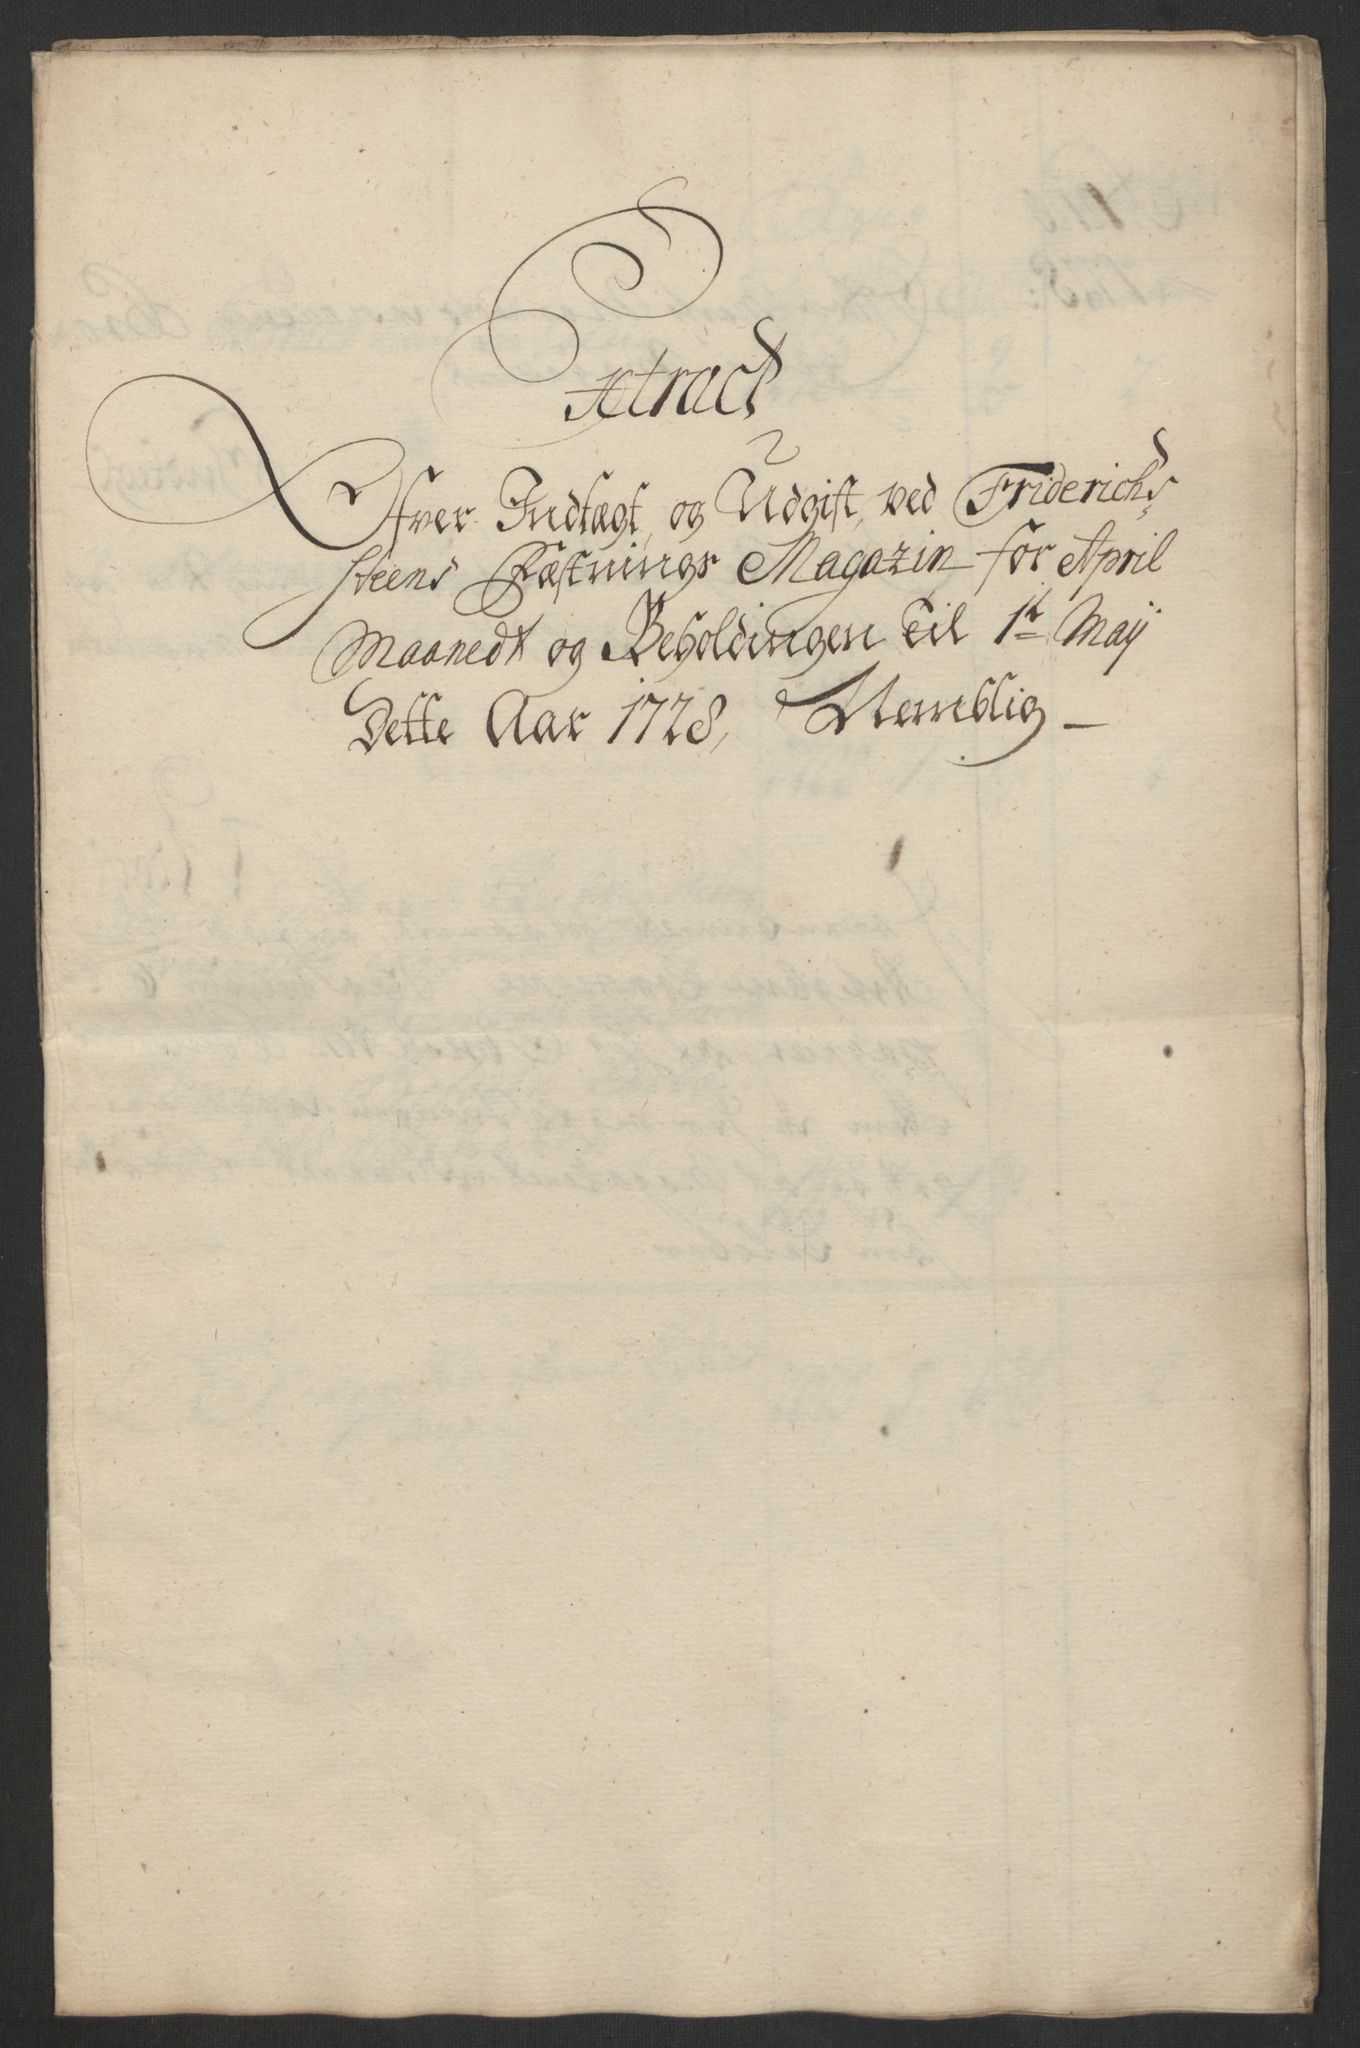 Extract
Ofver Indtægt, og Udgift, ved Friderichs
steens Fæstnings Magazin for April
Maanedt og Beholdingen til 1te Maij
Dette Aar 1728, Nemblig